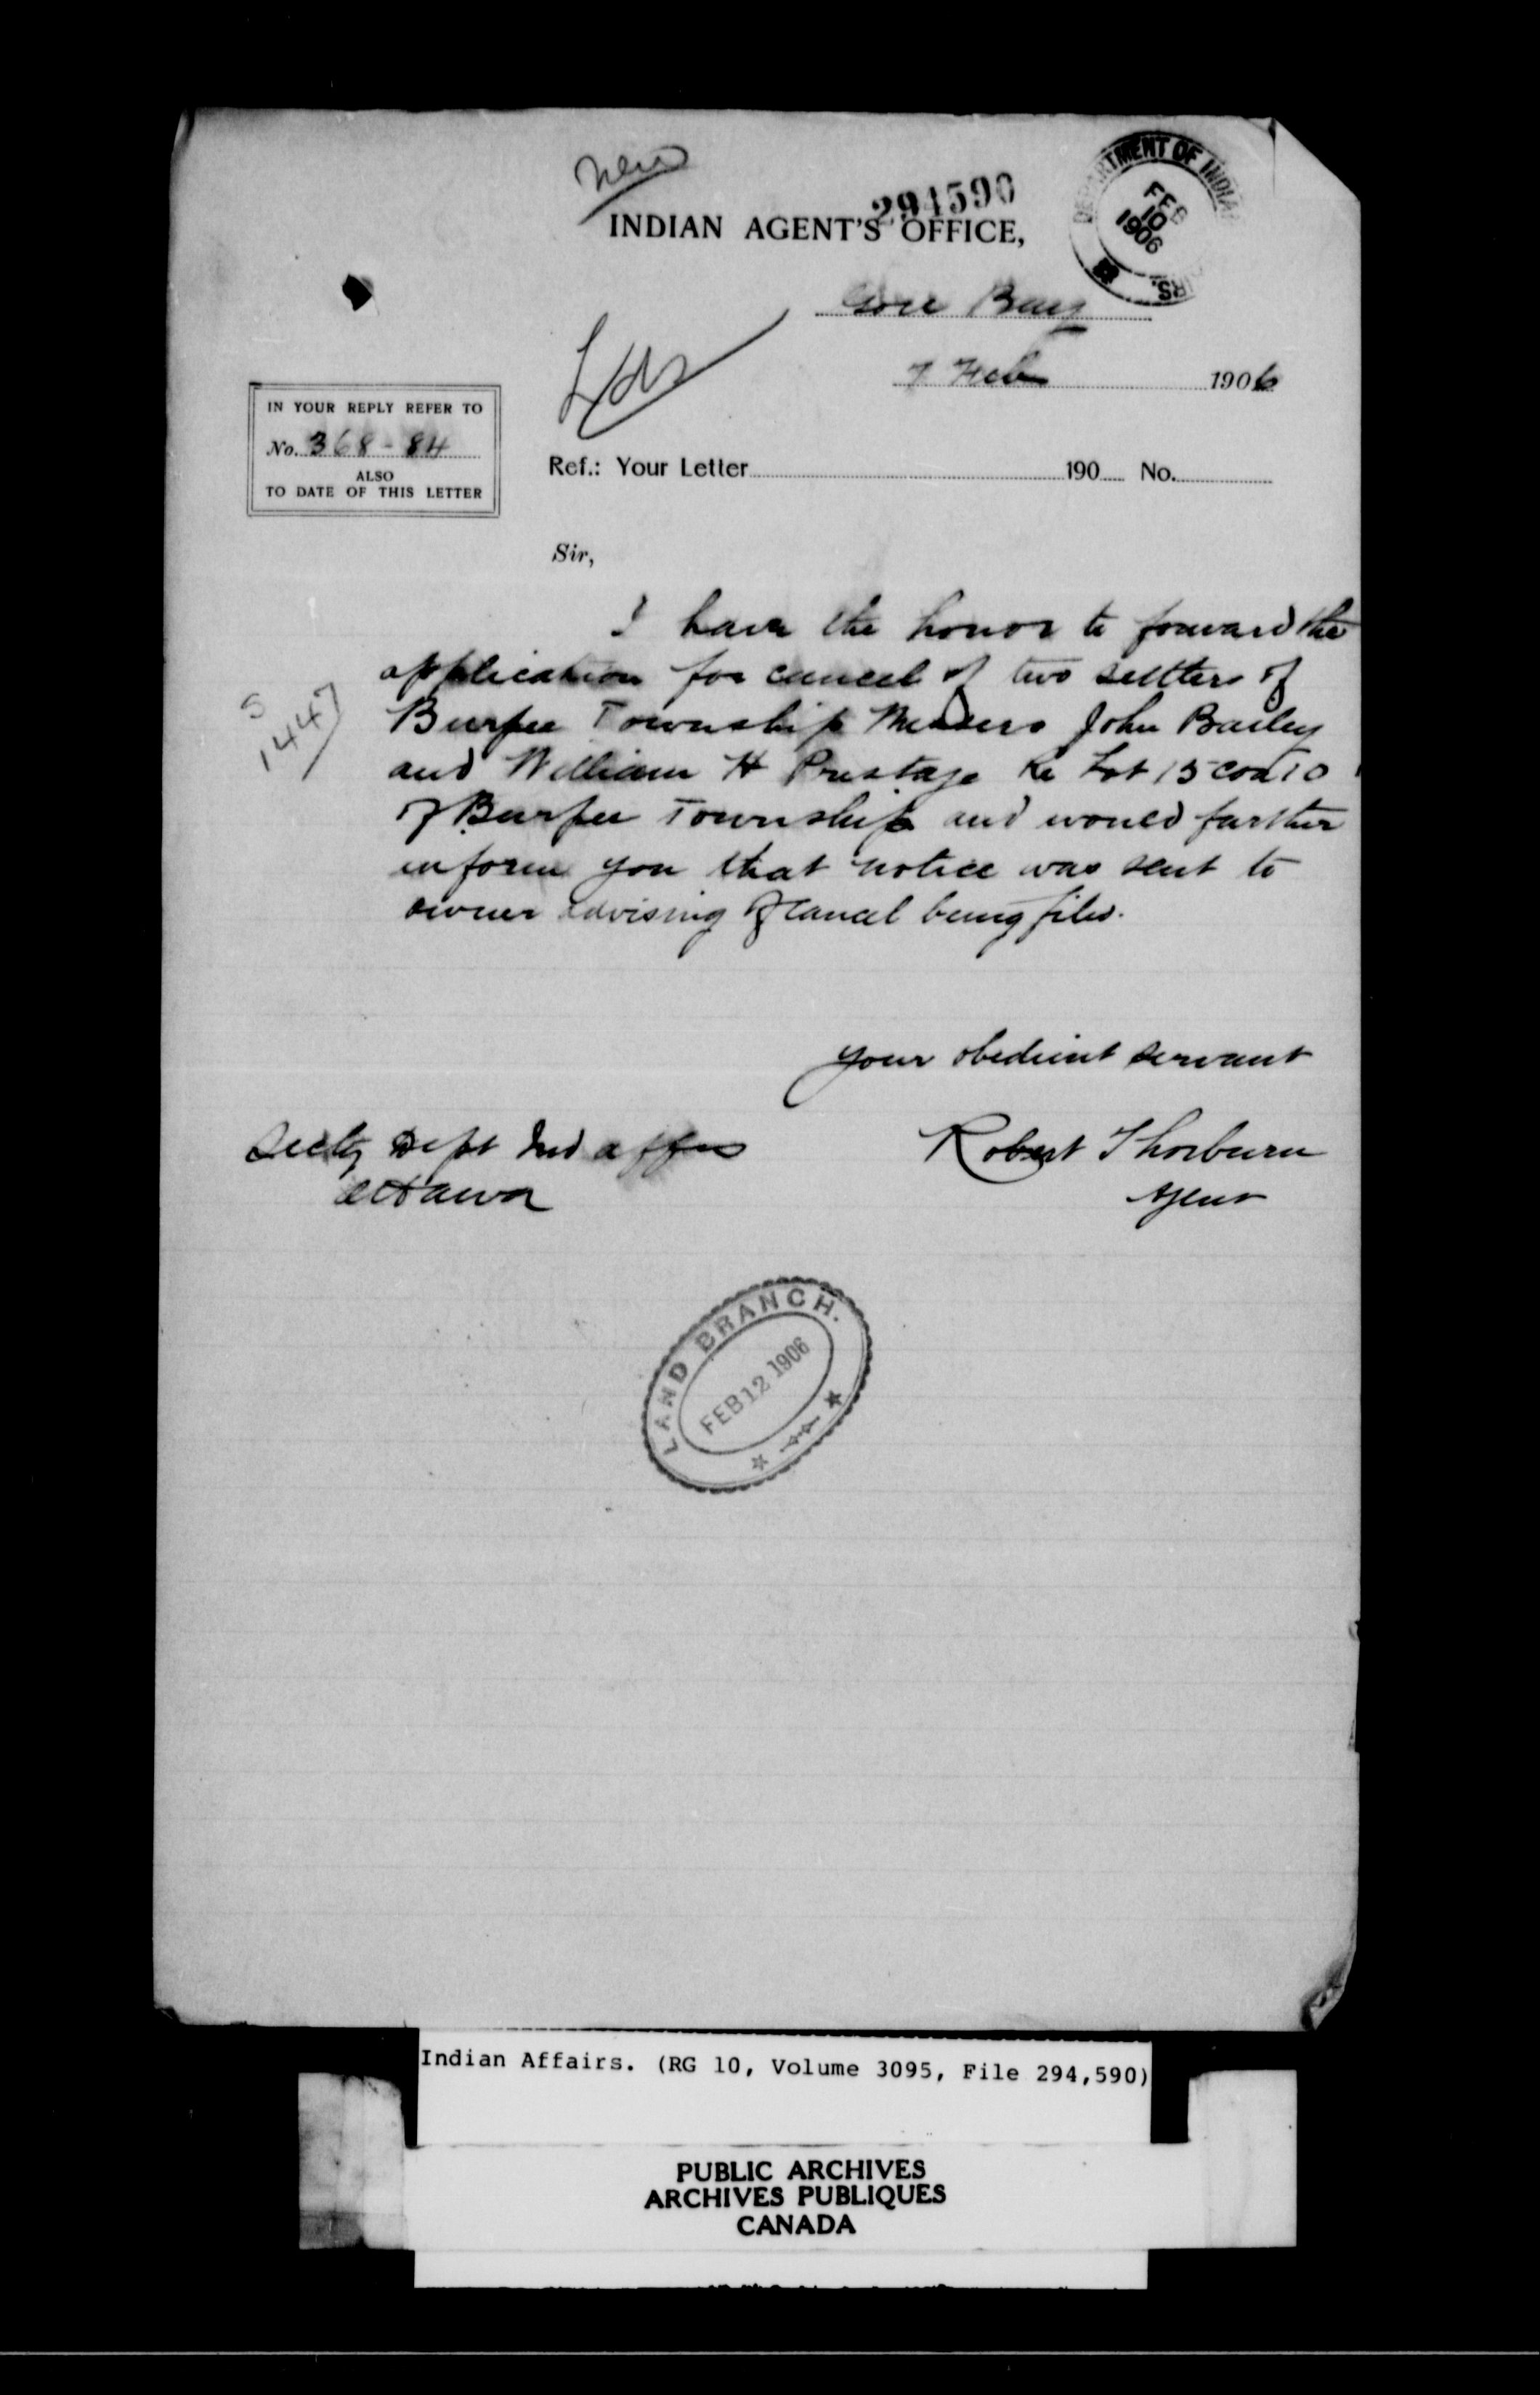 New
294590
INDIAN AGENT'S OFFICE,
DEPARTMENT OF INDIAN
FEB
10
1906
RS.
Gore Bay
7 Feb 1906
IN YOUR REPLY REFER TO
No. 368-84
ALSO
TO DATE OF THIS LETTER
Ref.: Your Letter 190 No.
Sir,
I have the honor to forward the
application for cancel of two settlers of
Burpee Township Messers John Bailey
and William H Prestage Re Lot 15 con 10
of Burpee Township and would further
inform you that notice was sent to
owner advising of cancel being filed.
S
1447
your obedient servant
Secty Dept Ind affrs
Ottawa
Robert Thorburn
Agent
LAND BRANCH.
FEB 12 1906
Indian Affairs. (RG 10, Volume 3095, File 294,590)
PUBLIC ARCHIVES
ARCHIVES PUBLIQUES
CANADA